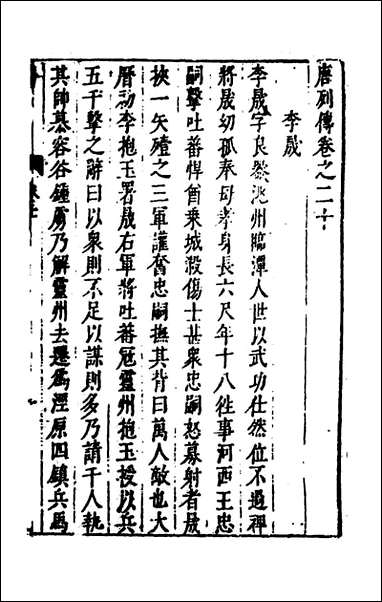 唐列傳卷之二十
李晟
李晟字良器洮州臨潭人世以武功仕然位不過裨
將晟幼孤奉母孝身長六尺年十八往事河西王忠
嗣擊吐蕃悍酋乘城殺傷士甚衆忠嗣怒募射者晟
挾一矢殪之三軍讙奮忠嗣撫其背曰萬人敵也大
曆初李抱玉署晟右軍將吐蕃寇靈州抱玉授以兵
五千擊之辭曰以衆則不足以謀則多乃請千人執
其帥慕容谷鍾虜乃解靈州去遷爲涇原四鎮兵馬